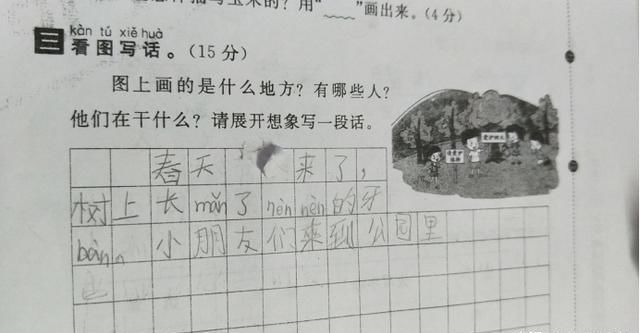 画出来。(4分)
kàn tú xiě huà
三 看图写话。(15分)
图上画的是什么地方？有哪些人？
他们在干什么？请展开想象写一段话。
春天 来了，
树上长mǎn了nèn nèn的牙
bàn。小朋友们来到公园里